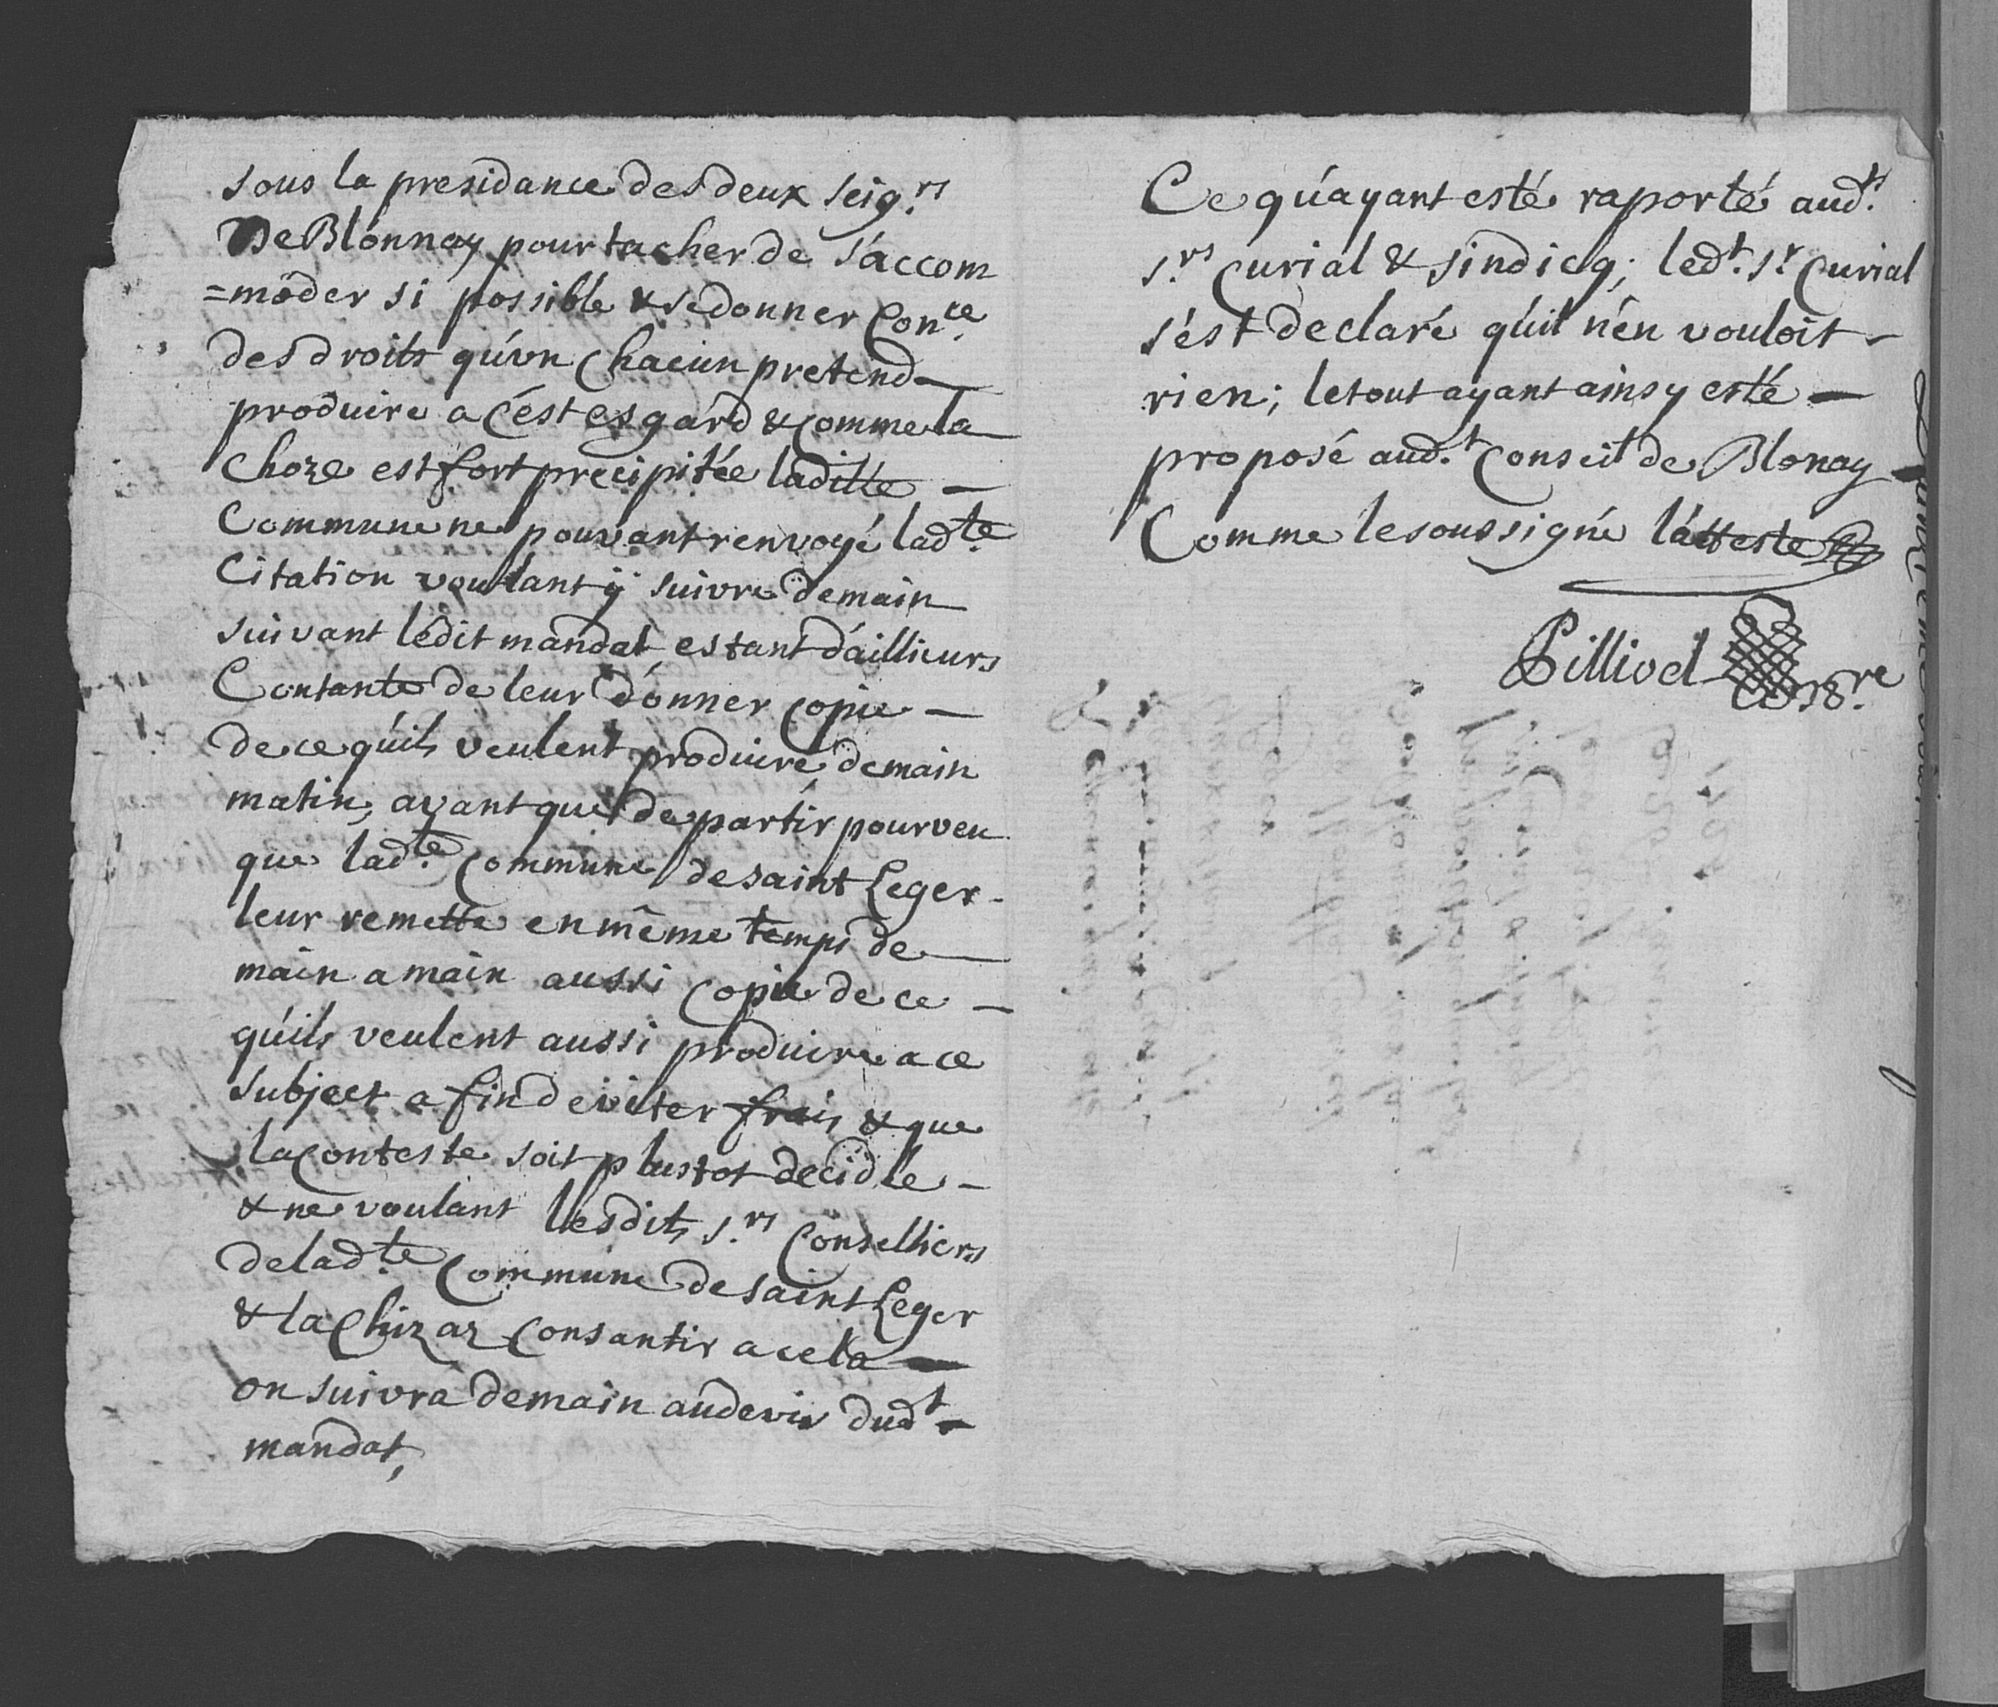 sous la presidance des deux seig.rs
De Blonnay pour tacher de s'accom
=moder si possible & se donner Con.ce
des droits qu'vn Chacun pretend
produire a C'est esgard & comme la
Choze est fort precipitée laditte
Commune ne pouvant renvoyé lad.te
Citation voulant ÿ suivre demain
suivant lédit mandat, estant d'aillieurs
Contante de leur donner Copie
de ce qu'ils veulent produire demain
matin, avant que de partir pourveu
que lad.te Commune de saint Leger
leur remette en même temps de
main a main aussi Copie de ce
qu'ils veulent aussi produire a ce
subject a fin deviter frais & que
la Conteste soit plustot decidle
& ne voulant lesdits s.rs Conselliers
de lad.te Commune de saint Leger
& la Chizaz Consantir a cela
on suivra demain au devis dud.t
mandat,
Ce qu'ayant esté raporté aud.ts
s.rs Curial & sindicq; led.t s.r Curial
s'est declaré qu'il n'en vouloit
rien; le tout ayant ainsy esté
proposé aud.t Conseil de Blonay
Comme le soussigné l'atteste
Pilliod